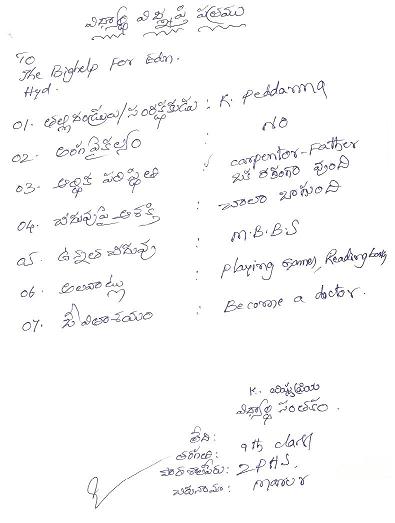 విద్యార్థి విజ్ఞప్తి పత్రము
To
The Bighelp For Edn.
Hyd.
01. తల్లిదండ్రులు/సంరక్షకుడు : K. Peddanna
02. అంగవైకల్యం : NO
carpentor-Father
03. ఆర్థిక పరిస్థితి : ఒక రకంగా వుంది
04. చదువుపై ఆసక్తి : చాలా బాగుంది
05. ఉన్నత చదువు : M.B.B.S
06. అలవాట్లు : Playing Games, Reading books
07. జీవితాశయం : Become a doctor.
K.
విద్యార్థి సంతకం.
తేది:
తరగతి: 9th class
పాఠశాలపేరు: ZPHS.
చిరునామా: